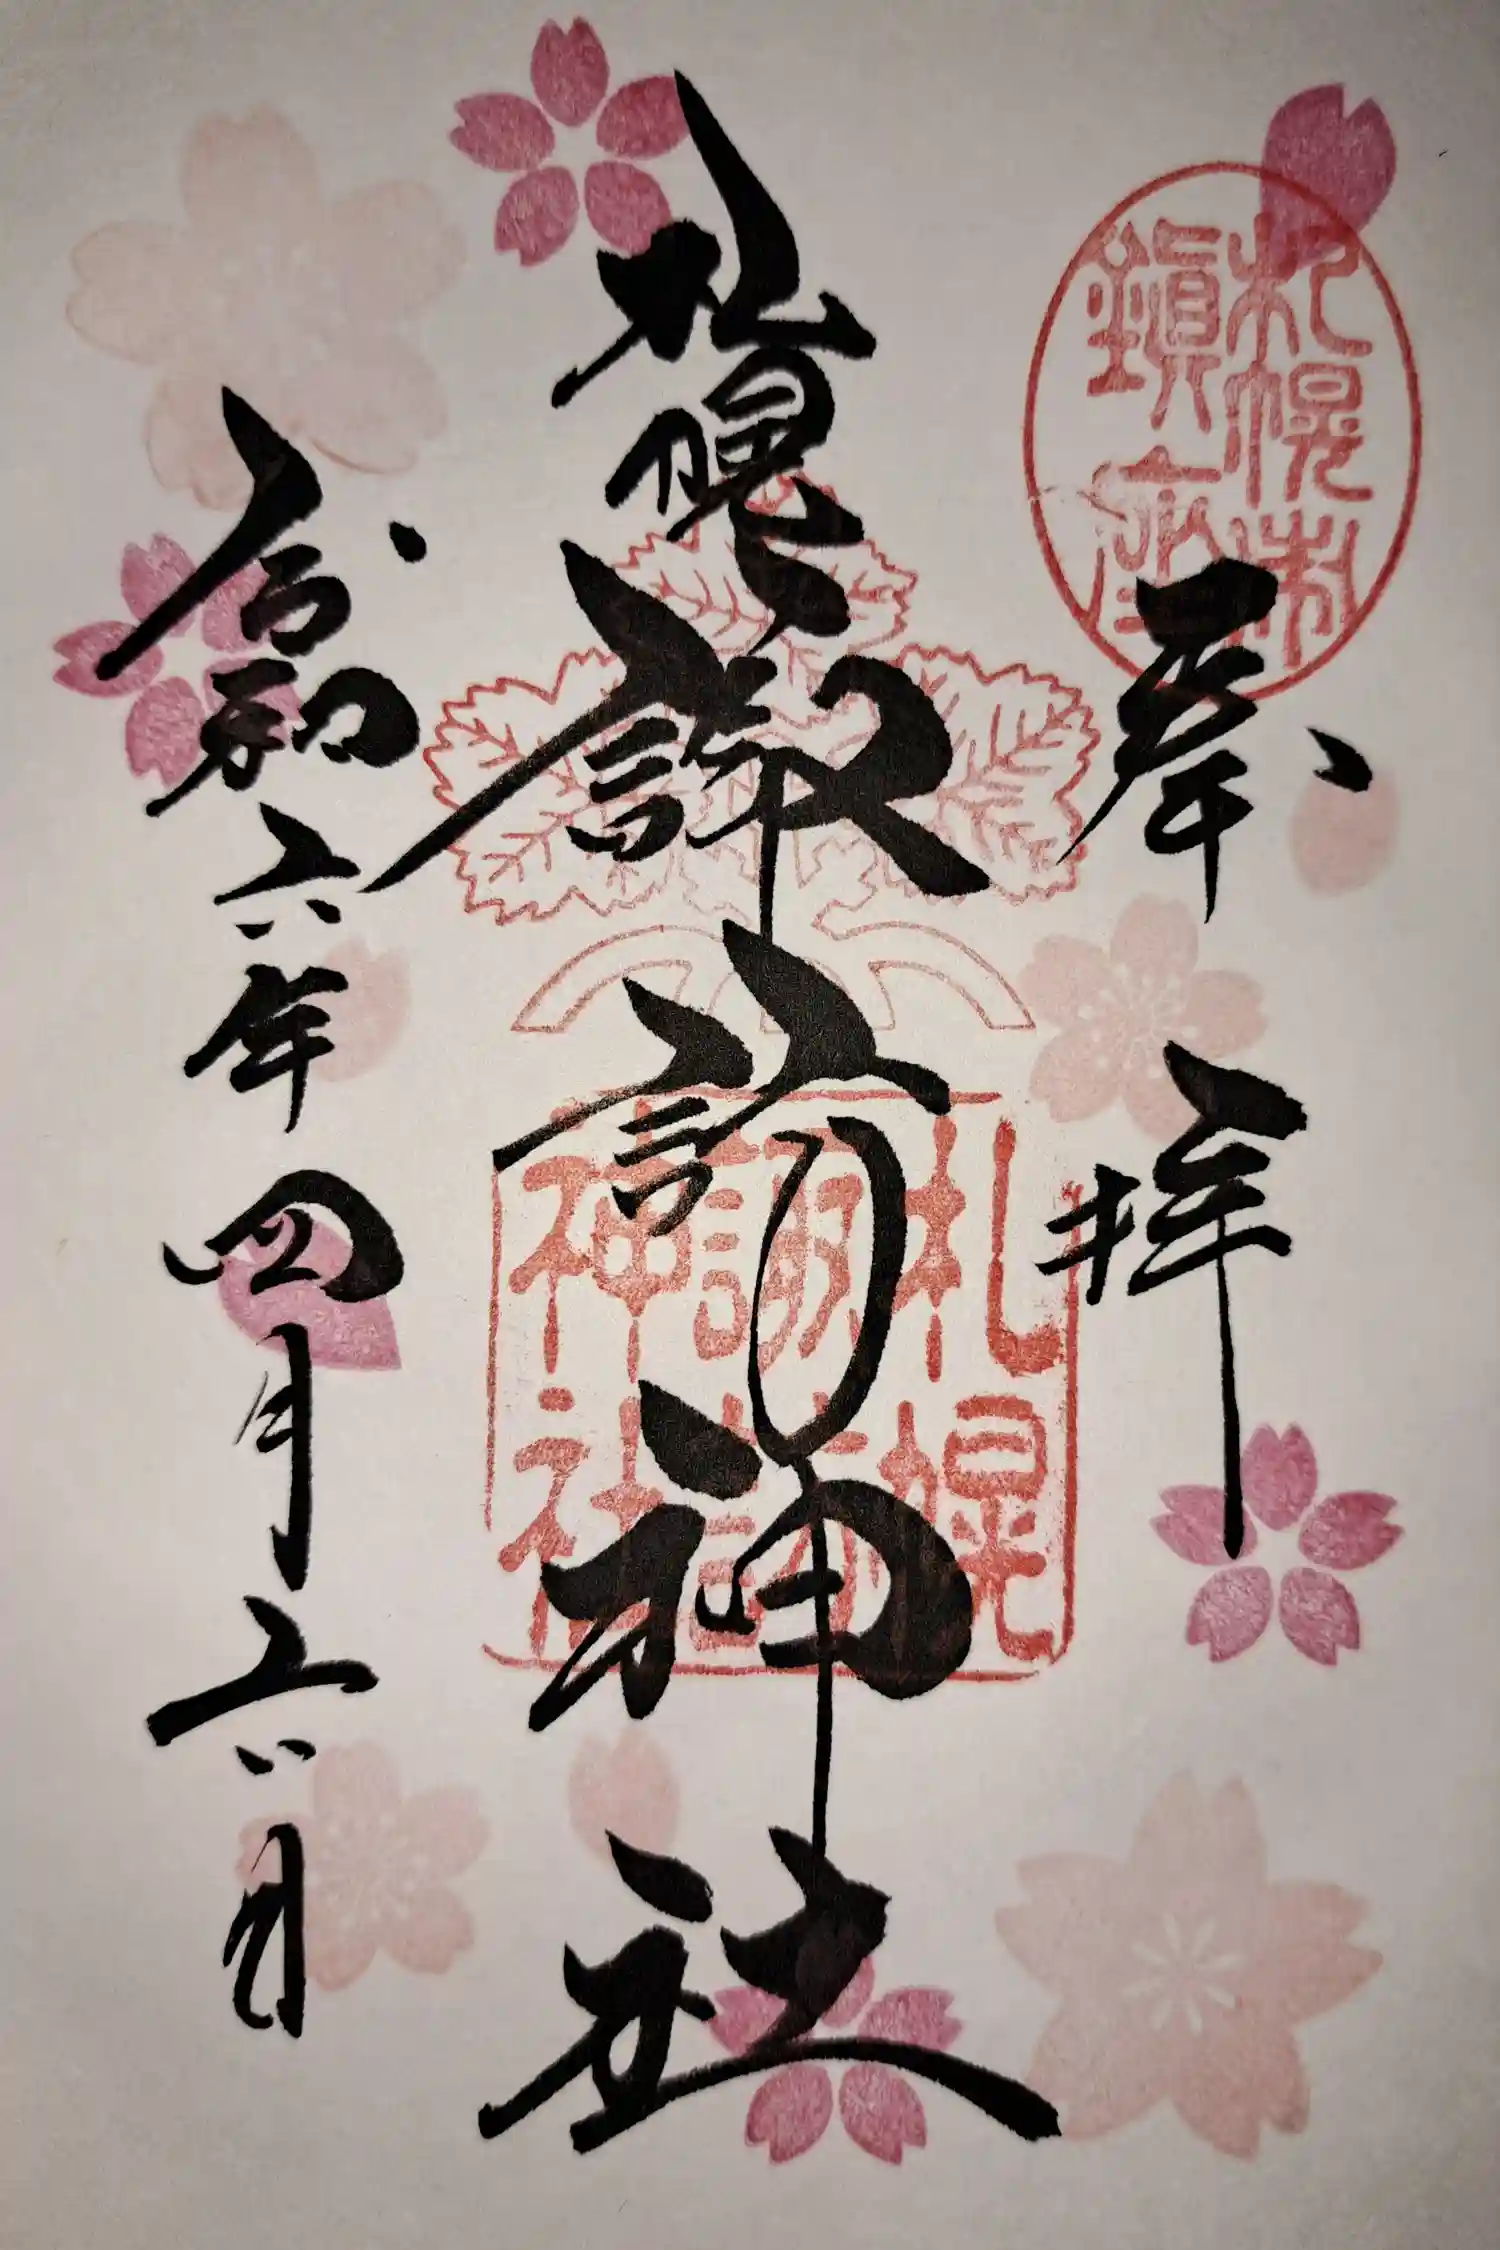 札幌市
鎮座
奉拝
札幌諏訪神社
札幌
諏訪
神社
令和六年四月六日